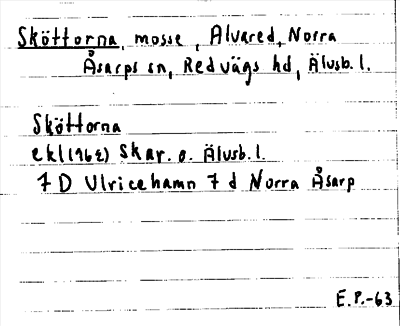 Sköttorna, mosse, Alvared, Norra
Åsarps sn, Redvägs hd, Älvsb. l.
Sköttorna
ekl(1962) Skar. o. Älvsb. l.
7 D Ulricehamn 7 d Norra Åsarp
E.P.-63